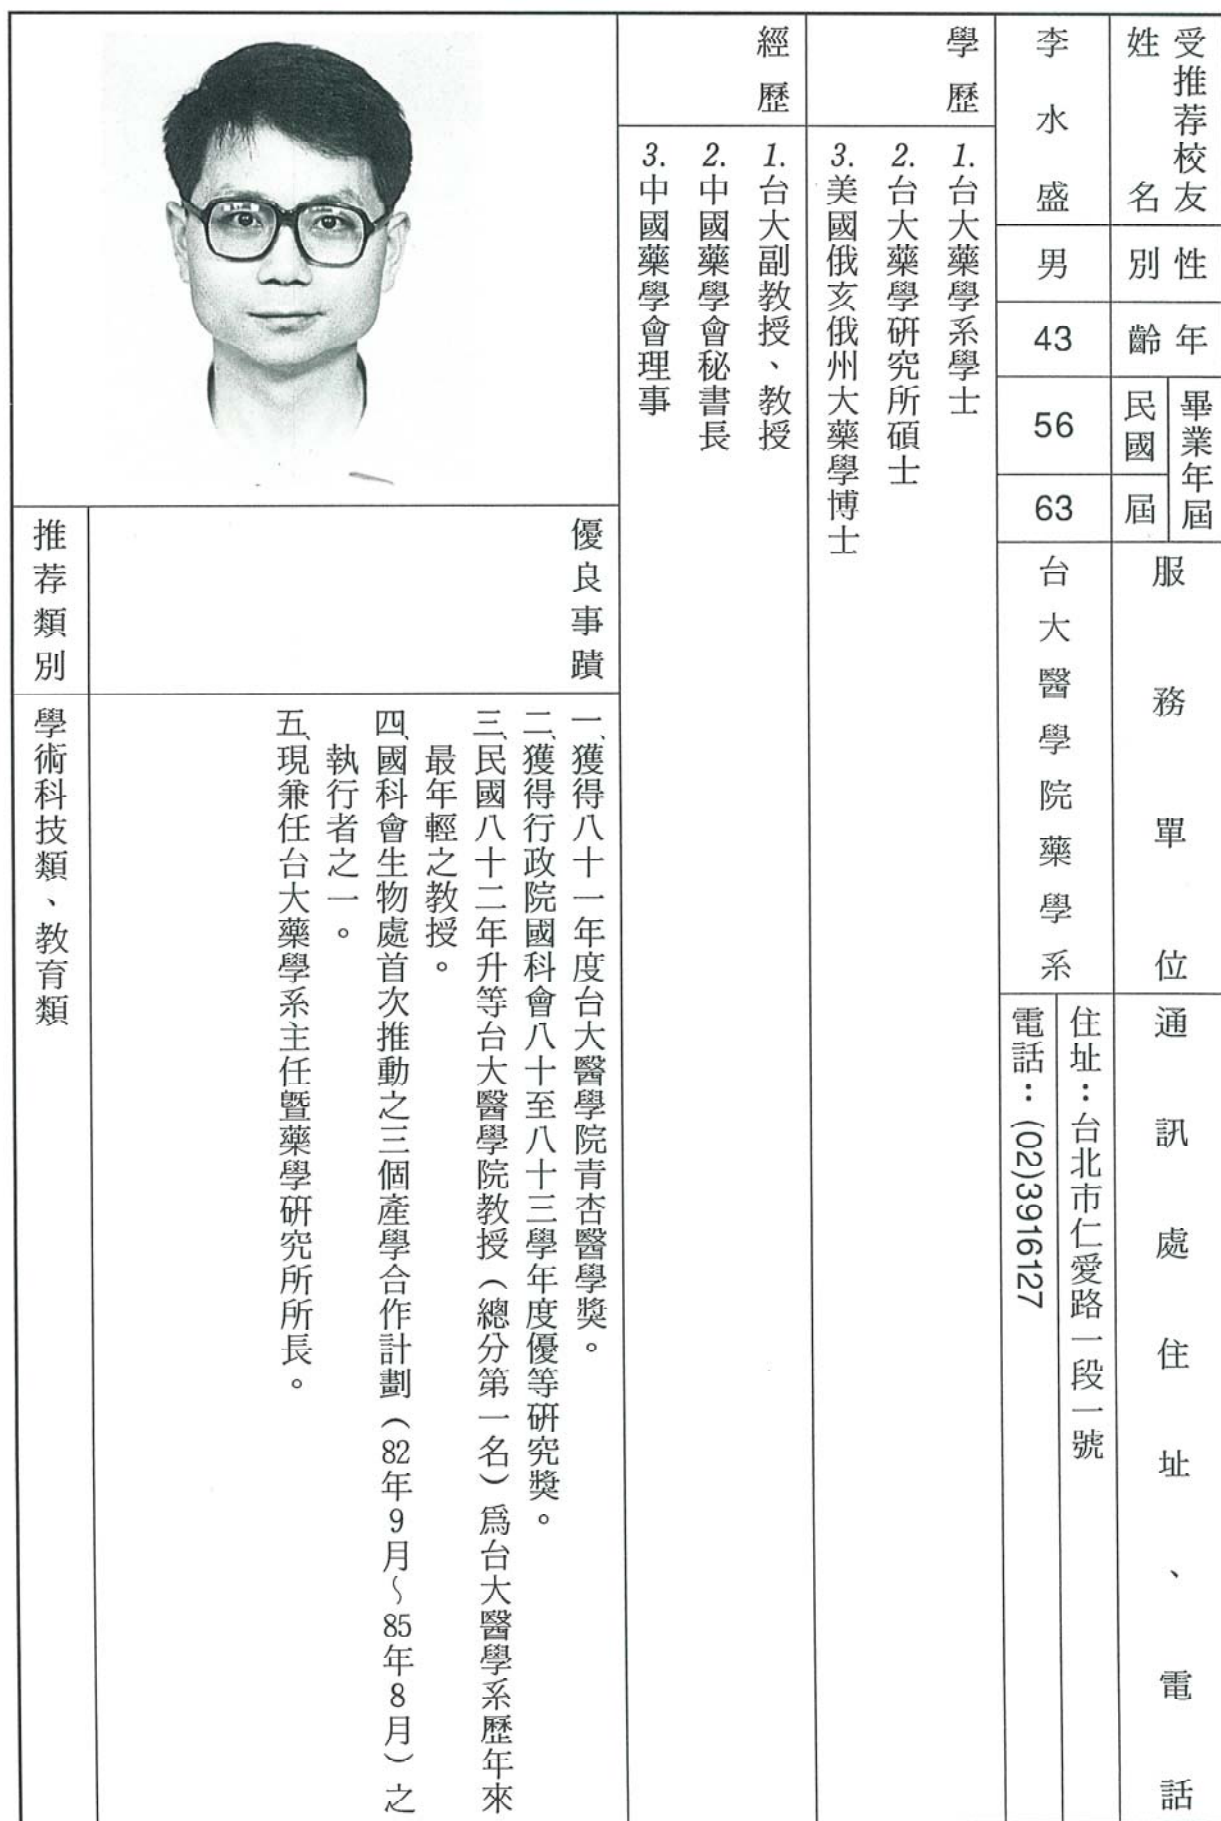 受推荐校友
姓名
李水盛
性別
男
年齡
43
畢業年屆
民國
56
屆
63
服務單位
台大醫學院藥學系
通訊處住址、電話
住址：台北市仁愛路一段一號
電話：(02)3916127
學歷
1.台大藥學系學士
2.台大藥學研究所碩士
3.美國俄亥俄州大藥學博士
經歷
1.台大副教授、教授
2.中國藥學會秘書長
3.中國藥學會理事
優良事蹟
一、獲得八十一年度台大醫學院青杏醫學獎。
二、獲得行政院國科會八十至八十三學年度優等研究獎。
三、民國八十二年升等台大醫學院教授（總分第一名）爲台大醫學系歷年來
最年輕之教授。
四、國科會生物處首次推動之三個產學合作計劃（82年9月～85年8月）之
執行者之一。
五、現兼任台大藥學系主任暨藥學研究所所長。
推荐類別
學術科技類、教育類